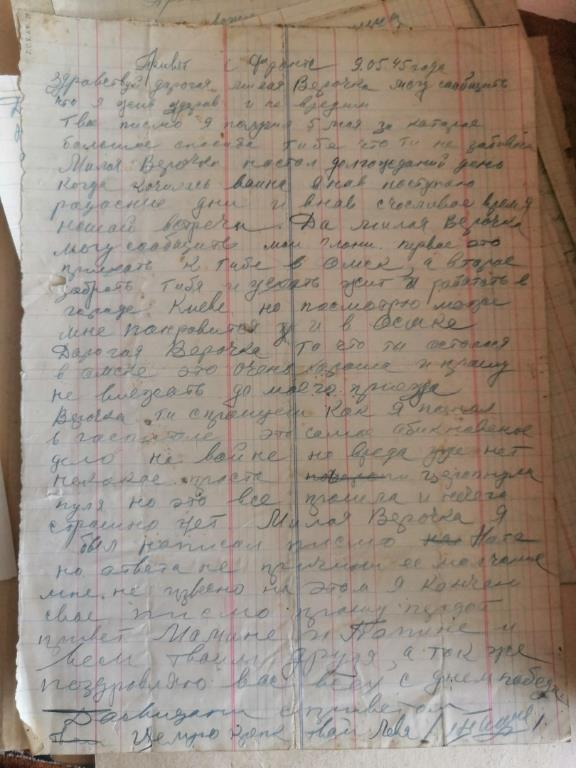 Привет с фронта 9.05.45 года
Здравствуй дорогая милая Верочка могу сообщить
что я жив здоров и не вредим
Твае писмо я получил 5 мая за каторое
большое спасибо тибе что ти не забовай
Милая Верочка настал долгожданий день
когда кончилась вайна
радасние дни и внав счасливае время
нашай встречи. Да милая Верочка
могу сообщить маи плани. первое это
приехать к тибе в Омск, а второе
забрать тибя и уехать жит и работать в
городе Киеве но посмотрю может
мне понравится и в Осмке
Дарогая Верочка то что ти осталася
в омске это очень харашо и прашу
не виезжать до маего приезда
Верочка ти спрашуеш как я попал
в гаспиталь это самае абикновеное
дело на вайне но вреда уже нет
некакое проста царапнула
пуля но это все прашло и нечего
страшно нет Милая Верочка я
был написал писмо Ната
но ответа не причини ее молчание
мне не извесно на этом я кончаю
свае писмо прашу передат
привет Мамине и Папине и
всем тваим друзя, а так же
поздровляю вас всех с днем победы
Давиздани с приветом
твай Лева